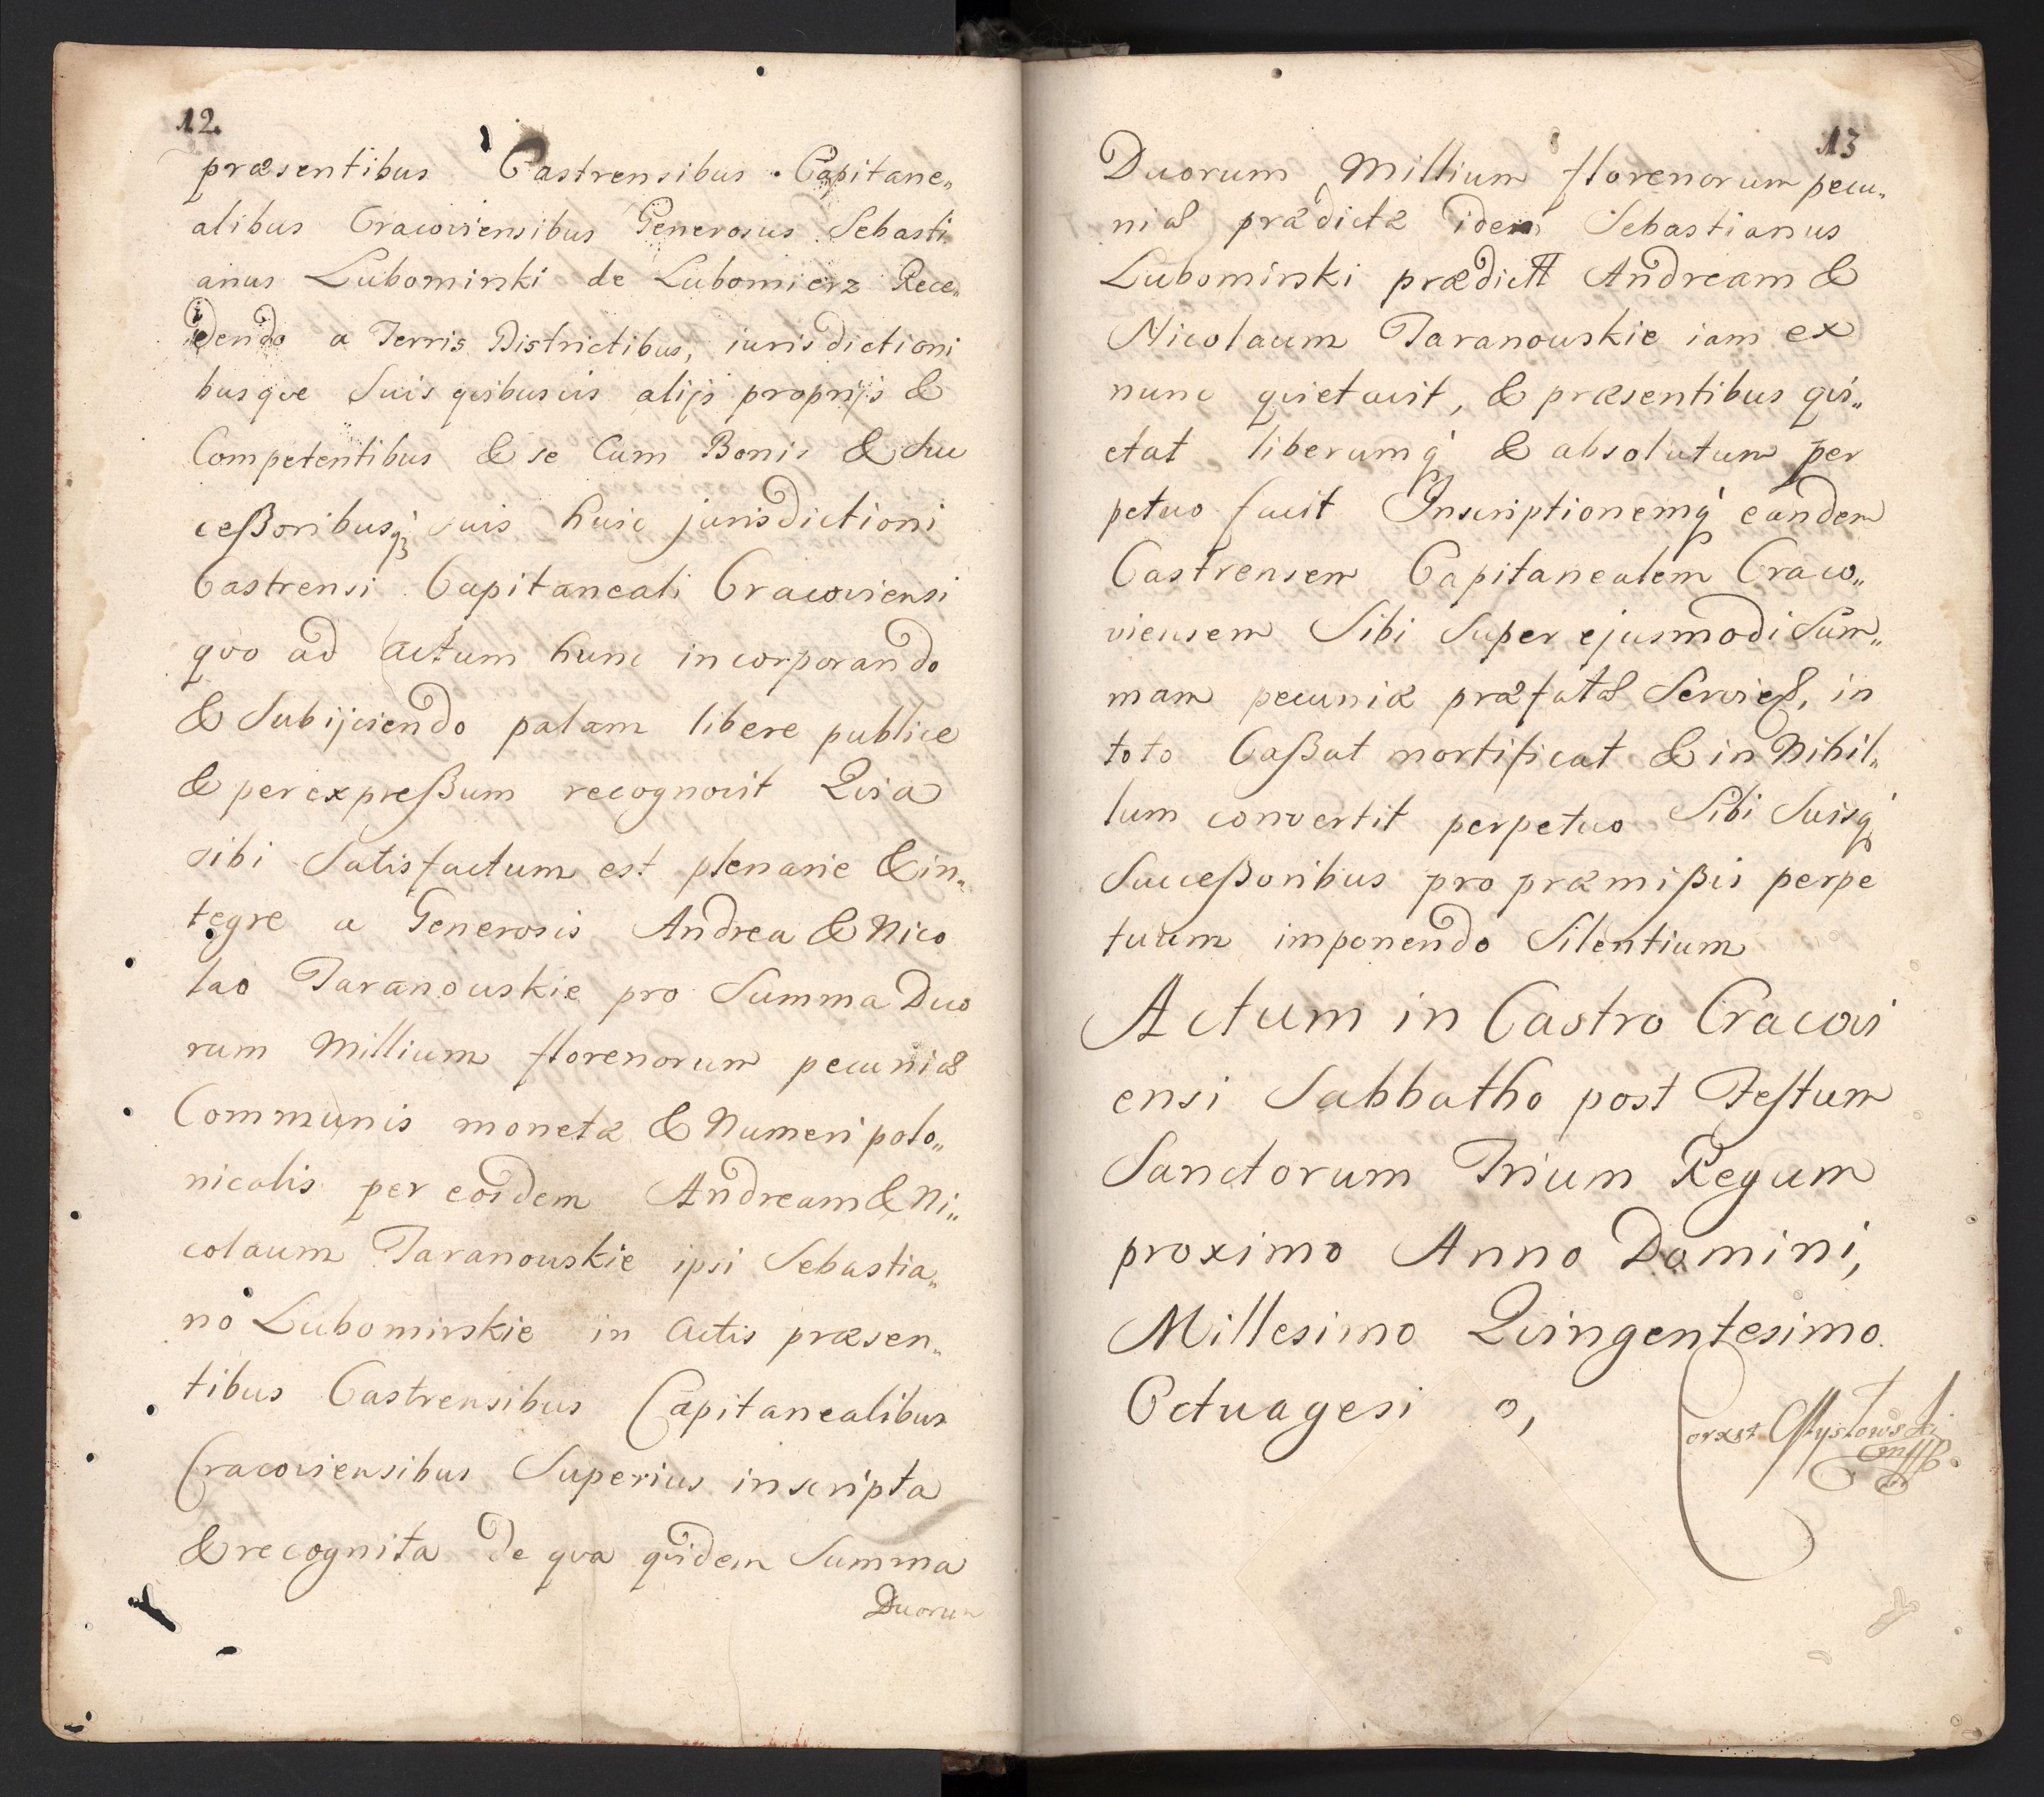 12.
præsentibus Castrensibus Capitane„
alibus Cracoviensibus Generosus Sebasti
anus Lubomirski de Lubomierz Rece„
dendo a Terris Districtibus, iurisdictioni
busqve Suis qvibusvis alijs proprijs &
Competentibus & se Cum Bonis & Suc
ceßoribusq́ suis huic jurisdictioni
Castrensi Capitaneali Cracoviensi
qvo ad actum hunc incorporando
& Subijciendo palam libere publice
& per expreßum recognovit Qvia
sibi Satisfactum est plenarie & in„
tegre a Generosis Andrea & Nico
lao Taranouskie pro Summa Duo
rum Millium florenorum pecuniæ
Communis monetæ & Numeri polo„
nicalis per eosdem Andream & Ni„
colaum Taranouskie ipsi Sebastia„
no Lubomirskie in Actis præsen„
tibus Castrensibus Capitanealibus
Cracoviensibus Superius inscripta
& recognita de qva qvidem Summa
Duorum
13
Duorum Millium florenorum pecu„
niæ prædictæ idem Sebastianus
Lubomirski prædictt Andream &
Nicolaum Taranouskie iam ex
nunc qvietavit, & præsentibus qvi„
etat liberumq́ & absolutum per
petuo facit Inscriptionemq́ eandem
Castrensem Capitanealem Craco„
viensem Sibi Super ejusmodi Sum„
mam pecuniæ præfatæ Servien, in
toto Caßat mortificat & in Nihil„
lum convertit perpetuo Sibi Suisq́
Succeßoribus pro præmißis perpe
tuum imponendo Silentium
Actum in Castro Cracovi
ensi Sabbatho post Festum
Sanctorum Trium Regum
proximo Anno Domini,
Millesimo Qvingentesimo.
Octuagesi o,